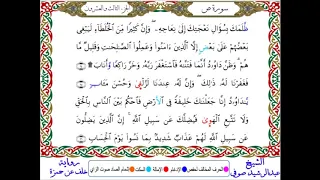 سورة ص
الجزء الثالث والعشرون
ظَلَمَكَ بِسُؤَالِ نَعْجَتِكَ إِلَىٰ نِعَاجِهِۦ ۖ وَإِنَّ كَثِيرًا مِّنَ ٱلْخُلَطَآءِ لَيَبْغِى
بَعْضُهُمْ عَلَىٰ بَعْضٍ إِلَّا ٱلَّذِينَ ءَامَنُوا۟ وَعَمِلُوا۟ ٱلصَّـٰلِحَـٰتِ وَقَلِيلٌ مَّا
هُمْ ۗ وَظَنَّ دَاوُۥدُ أَنَّمَا فَتَنَّـٰهُ فَٱسْتَغْفَرَ رَبَّهُۥ وَخَرَّ رَاكِعًا وَأَنَابَ
فَغَفَرْنَا لَهُۥ ذَٰلِكَ ۖ وَإِنَّ لَهُۥ عِندَنَا لَزُلْفَىٰ وَحُسْنَ مَـَٔابٍ
يَـٰدَاوُۥدُ إِنَّا جَعَلْنَـٰكَ خَلِيفَةً فِى ٱلْأَرْضِ فَٱحْكُم بَيْنَ ٱلنَّاسِ بِٱلْحَقِّ
وَلَا تَتَّبِعِ ٱلْهَوَىٰ فَيُضِلَّكَ عَن سَبِيلِ ٱللَّهِ ۚ إِنَّ ٱلَّذِينَ يَضِلُّونَ
عَن سَبِيلِ ٱللَّهِ لَهُمْ عَذَابٌ شَدِيدٌۢ بِمَا نَسُوا۟ يَوْمَ ٱلْحِسَابِ
الشيخ
عبدالرشيد صوفي
رواية
خلف عن حمزة